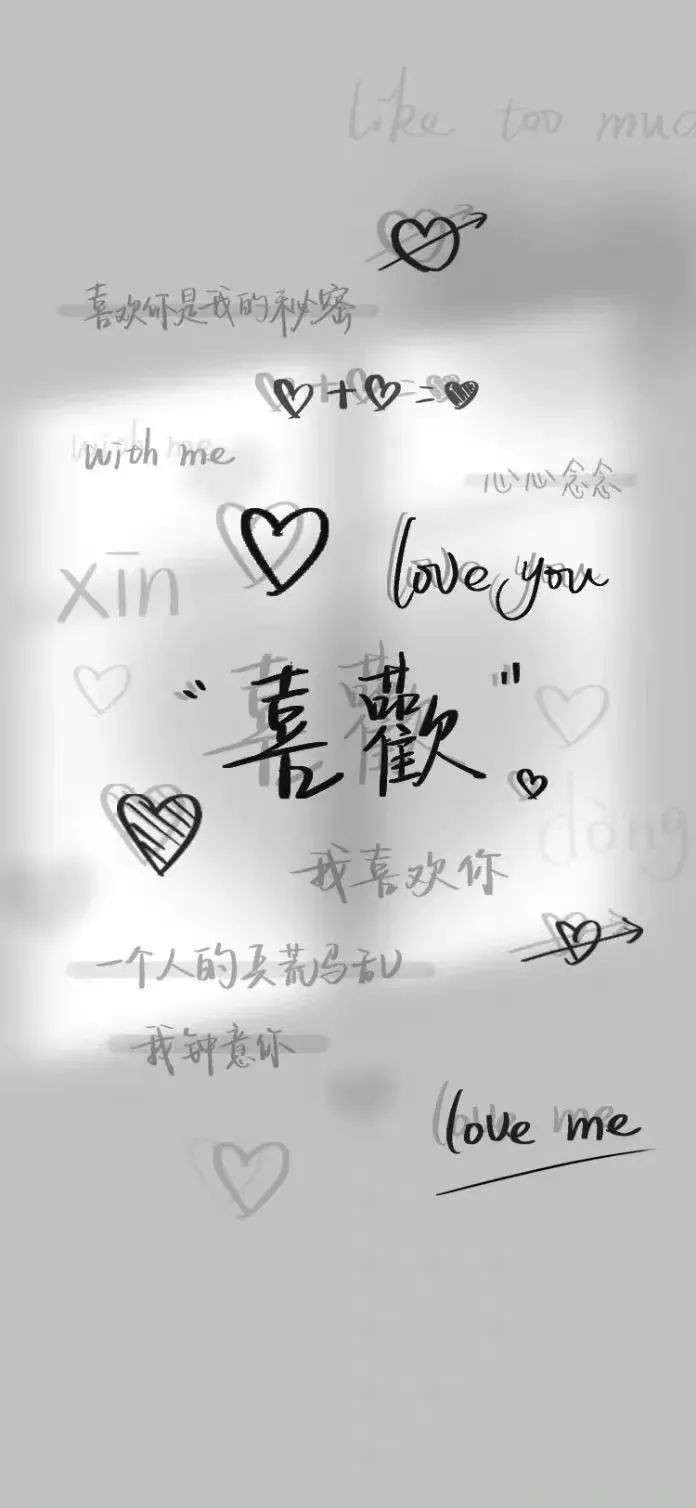 like too muc
喜欢你是我的秘密
+ =
with me
心心念念
xīn
love you
"喜歡"
dòng
我喜欢你
一个人的兵荒马乱
我钟意你
love me